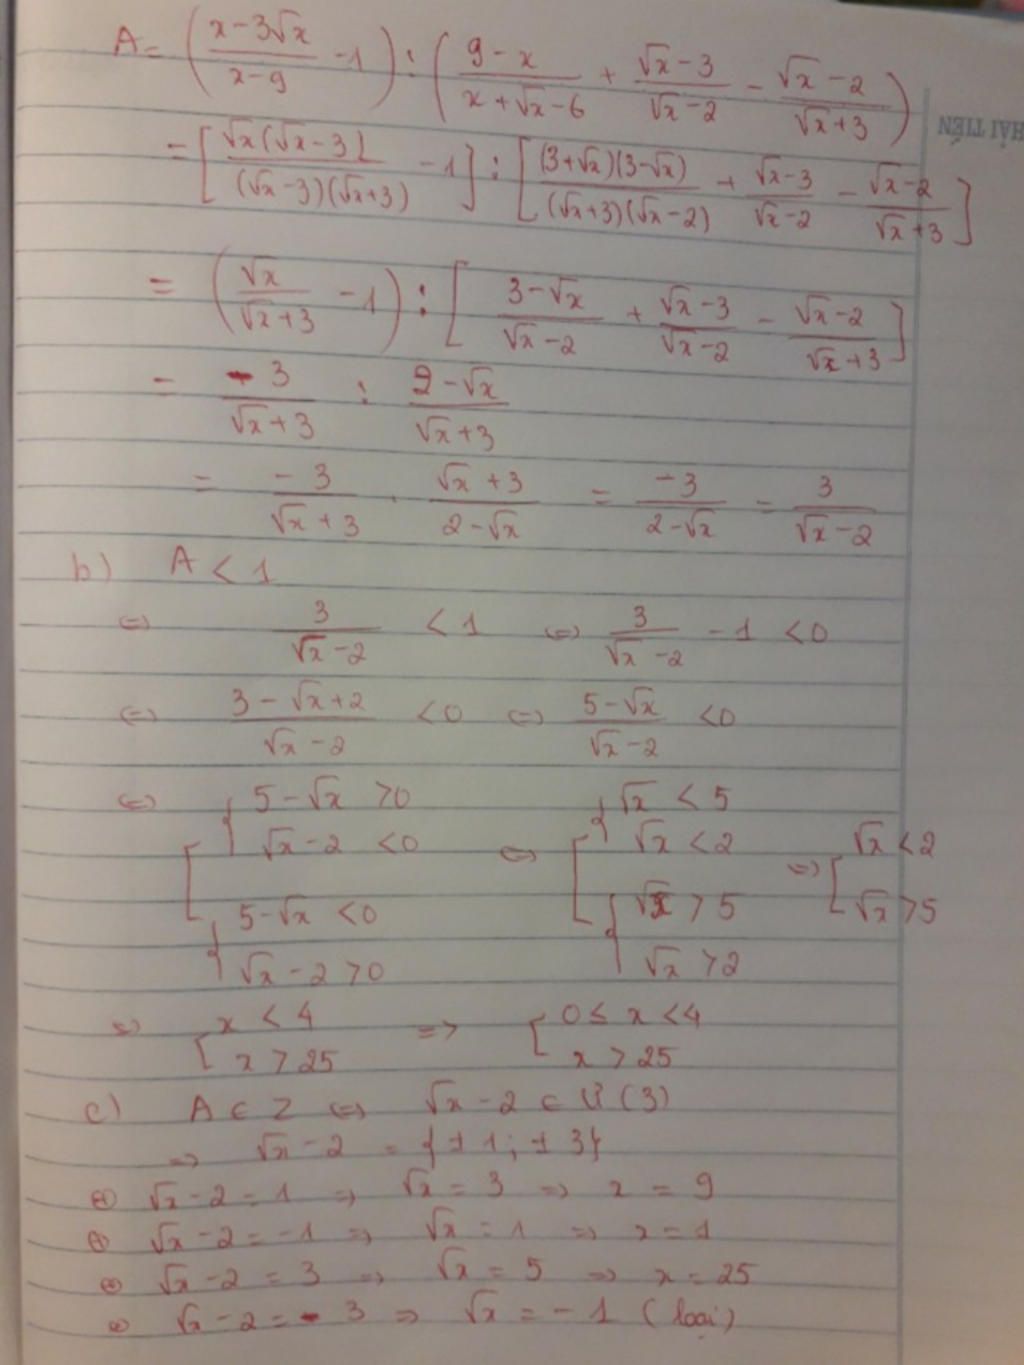 A = ( (x-3√x)/(x-9) - 1 ) : ( (9-x)/(x+√x-6) + (√x-3)/(√x-2) - (√x-2)/(√x+3) )
HẢI TIẾN
= [ √x(√x-3)/((√x-3)(√x+3)) - 1 ] : [ (3+√x)(3-√x)/((√x+3)(√x-2)) + (√x-3)/(√x-2) - (√x-2)/(√x+3) ]
= ( √x/(√x+3) - 1 ) : [ (3-√x)/(√x-2) + (√x-3)/(√x-2) - (√x-2)/(√x+3) ]
= -3/(√x+3) : (2-√x)/(√x+3)
= -3/(√x+3) . (√x+3)/(2-√x) = -3/(2-√x) = 3/(√x-2)
b) A < 1
⇔ 3/(√x-2) < 1 ⇔ 3/(√x-2) - 1 < 0
⇔ (3-√x+2)/(√x-2) < 0 ⇔ (5-√x)/(√x-2) < 0
⇔ [ { 5-√x > 0 ⇔ [ { √x < 5
√x-2 < 0 √x < 2 ⇒ [ √x < 2
{ 5-√x < 0 { √x > 5 √x > 5
√x-2 > 0 √x > 2
⇒ [ x < 4 ⇒ [ 0 ≤ x < 4
x > 25 x > 25
c) A ∈ Z ⇔ √x-2 ∈ Ư(3)
⇒ √x-2 = {±1; ±3}
⊕ √x-2 = 1 ⇒ √x = 3 ⇒ x = 9
⊕ √x-2 = -1 ⇒ √x = 1 ⇒ x = 1
⊕ √x-2 = 3 ⇒ √x = 5 ⇒ x = 25
⊕ √x-2 = -3 ⇒ √x = -1 (loại)